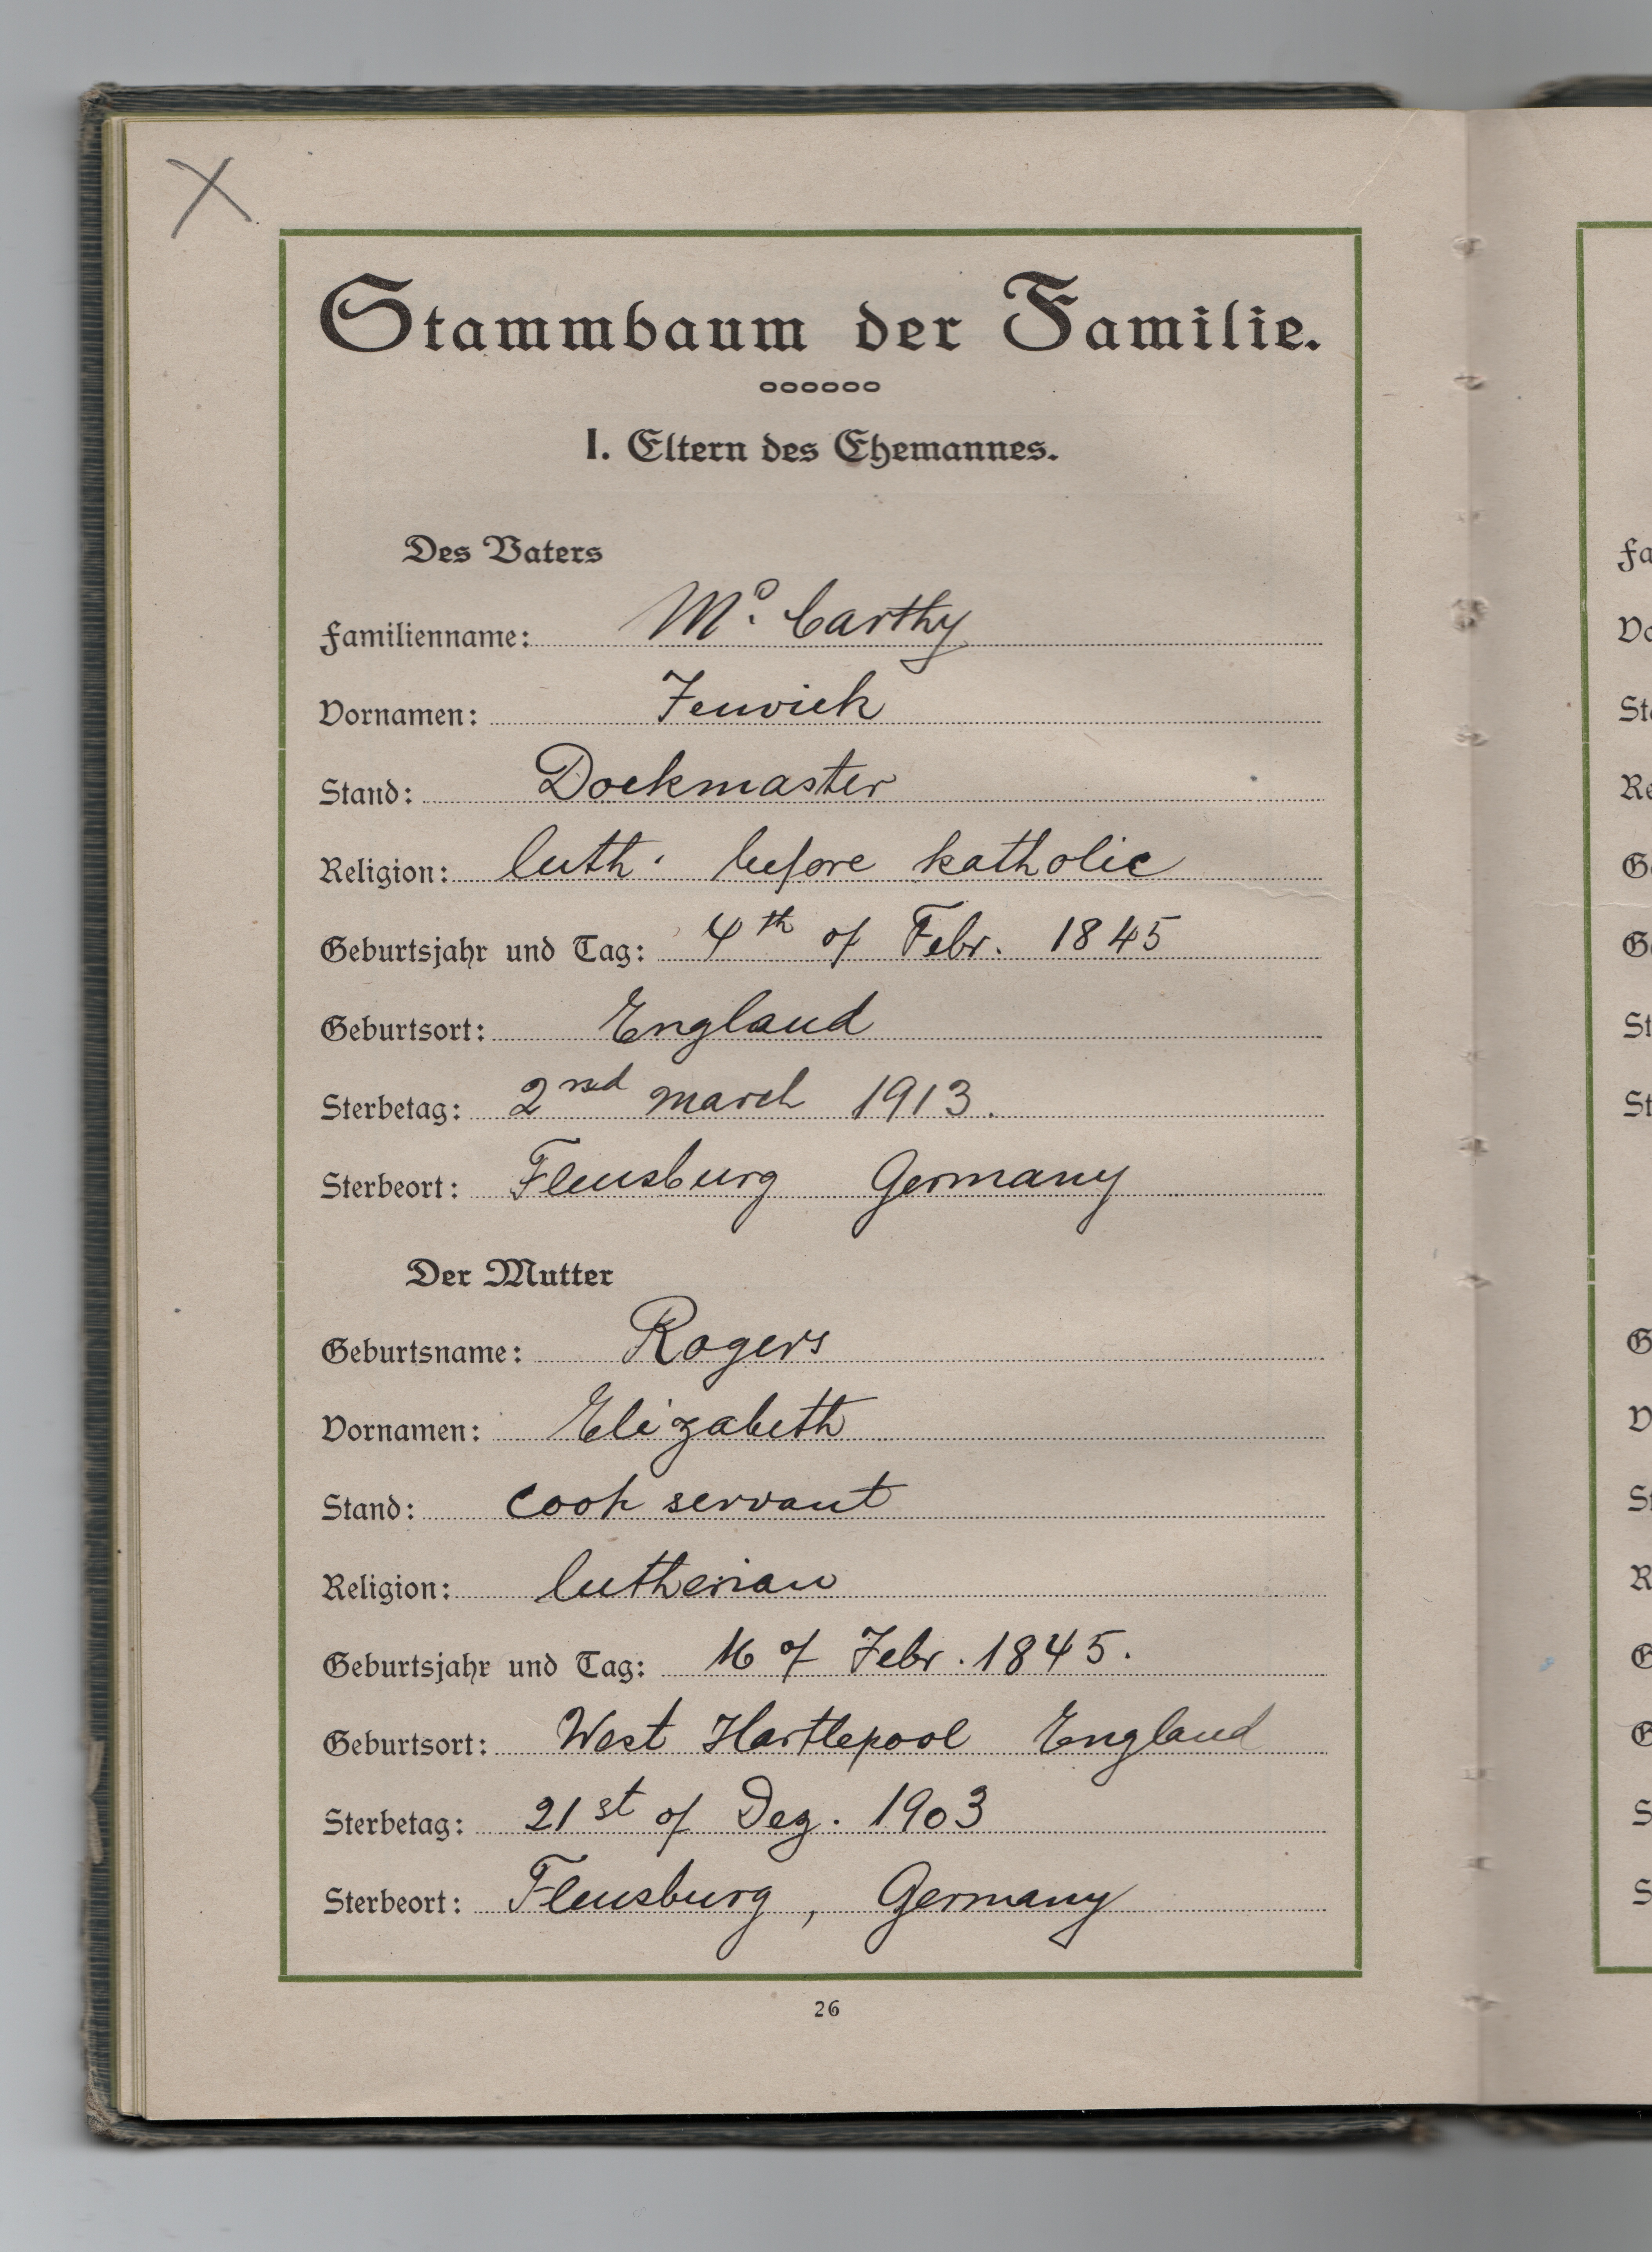 X
Stammbaum der Familie.
I. Eltern des Ehemannes.
Des Vaters
Familienname: Mc. Carthy
Vornamen: Fenwick
Stand: Dockmaster
Religion: luth. before katholic
Geburtsjahr und Tag: 4th of Febr. 1845
Geburtsort: England
Sterbetag: 2nd march 1913.
Sterbeort: Flensburg Germany
Der Mutter
Geburtsname: Rogers
Vornamen: Elizabeth
Stand: Cook servant
Religion: lutherian
Geburtsjahr und Tag: 16 of Febr. 1845.
Geburtsort: West Hartlepool England
Sterbetag: 21st of Dez. 1903
Sterbeort: Flensburg, Germany
26